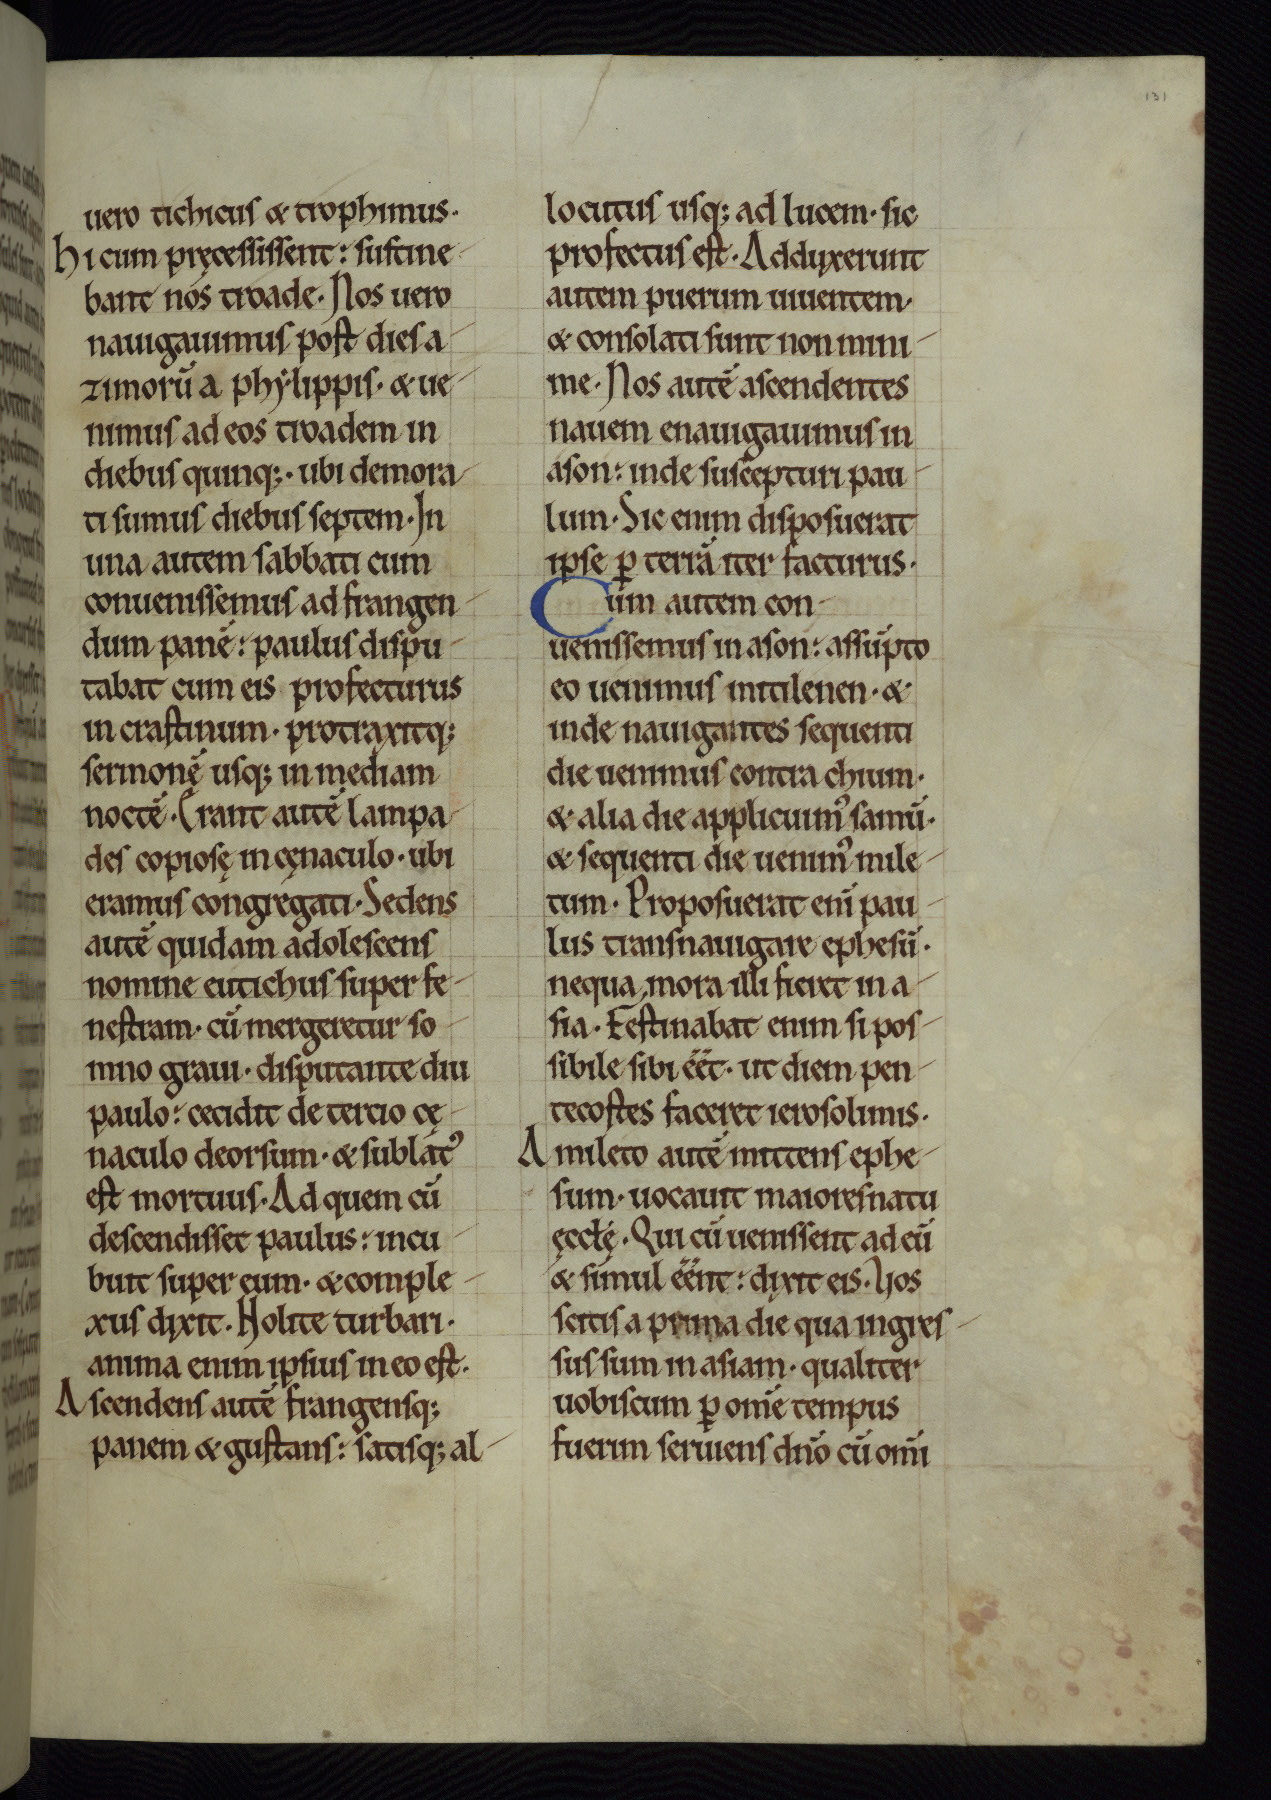 131
uero tichicus & trophimus·
hi cum pręcessissent: sustine-
bant nos troade· Nos uero
nauigauimus post dies a-
zimorū a phylippis· & ue-
nimus ad eos troadem in
diebus quinq;· ubi demora-
ti sumus diebus septem· In
una autem sabbati cum
conuenissemus ad frangen-
dum panē: paulus dispu-
tabat cum eis profecturus
in crastinum· protraxitq;
sermonē usq; in mediam
noctē· Erant autē lampa-
des copiosę in cęnaculo· ubi
eramus congregati· Sedens
autē quidam adolescens
nomine eutichus super fe-
nestram· cū mergeretur so-
mno graui· disputante diu
paulo: cecidit de tercio cę-
naculo deorsum· & sublat᾿
est mortuus· Ad quem cū
descendisset paulus: incu-
buit super eum· & comple-
xus dixit· Nolite turbari·
anima enim ipsius in eo est·
Ascendens autē frangensq;
panem & gustans: satisq; al-
locutus usq; ad lucem· sic
profectus est· Adduxerunt
autem puerum uiuentem·
& consolati sunt non mini-
me· Nos autē ascendentes
nauem enauigauimus in
ason: inde suscepturi pau-
lum· Sic enim disposuerat
ipse ꝑ terrā iter facturus·
Cum autem con-
uenissemus in ason: assūpto
eo uenimus mitilenen· &
inde nauigantes sequenti
die uenimus contra chium·
& alia die applicuim᾿ samū·
& sequenti die uenim᾿ mile-
tum· Proposuerat enī pau-
lus transnauigare ephesū·
nequa mora illi fieret in a-
sia· Festinabat enim si pos-
sibile sibi eēt· ut diem pen-
tecostes faceret ierosolimis·
A mileto autē mittens ephe-
sum· uocauit maiores natu
ęccłę· Qui cū uenissent ad eū
& simul eēnt: dixit eis· Uos
scitis a prima die qua ingres-
sus sum in asiam· qualiter
uobiscum ꝑ omē tempus
fuerim seruiens dnō cū omī